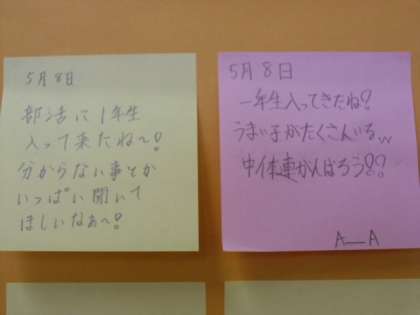 5月8日
部活に1年生
入って来たね〜!
分からない事とか
いっぱい聞いて
ほしいなぁ〜!
5月8日
一年生入ってきたね!
うまい子がたくさんいるw
中体連がんばろう!!
A__A